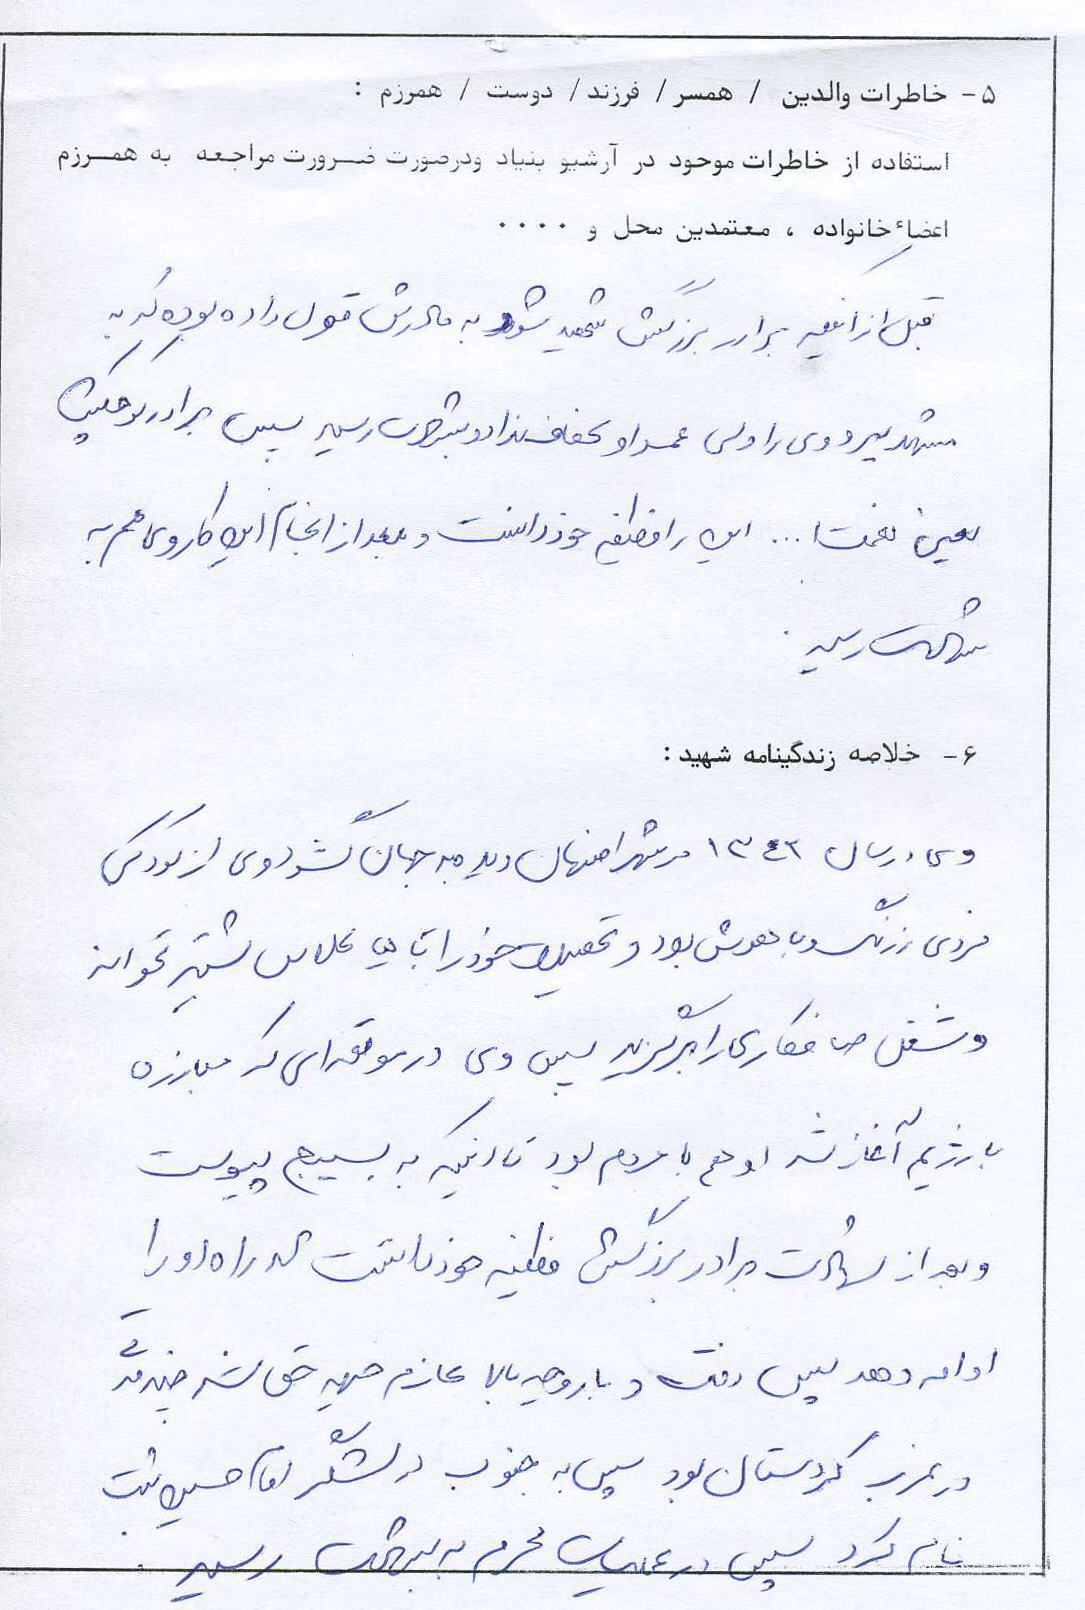 ۵- خاطرات والدین / همسر / فرزند / دوست / همرزم :
استفاده از خاطرات موجود در آرشیو بنیاد ودرصورت ضرورت مراجعه به همرزم
اعضاء خانواده ، معتمدین محل و ۰۰۰۰
قبل از اینکه برادر بزرگش شهید شود به مادرش قول داده بود که به
مشهد میرد وی را ولی عمر او کفاف نداد و بشهادت رسید سپس برادر کوچکش
یعنی نعمت ا... این را وظیفه خود دانست و بعد از انجام این کار وی هم به
شهادت رسید .
۶- خلاصه زندگینامه شهید :
وی در سال ۱۳۴۲ در شهر اصفهان دیده به جهان گشود وی از کودکی
فردی زرنگ و با هوش بود و تحصیلات خود را تا کلاس بیشتر نخواند
و شغل صافکاری را برگزید سپس وی در موقعه ای که مبارزه
با رژیم آغاز شد او هم با مردم بود تا اینکه به بسیج پیوست
و بعد از شهادت برادر بزرگش وظیفه خود دانست که راه او را
ادامه دهد سپس رفت و با روحیه بالا عازم جبهه حق شد چند مدتی
در غرب کردستان بود سپس به جنوب در لشگر امام حسین ثبت
نام کرد سپس در عملیات محرم به شهادت رسید .